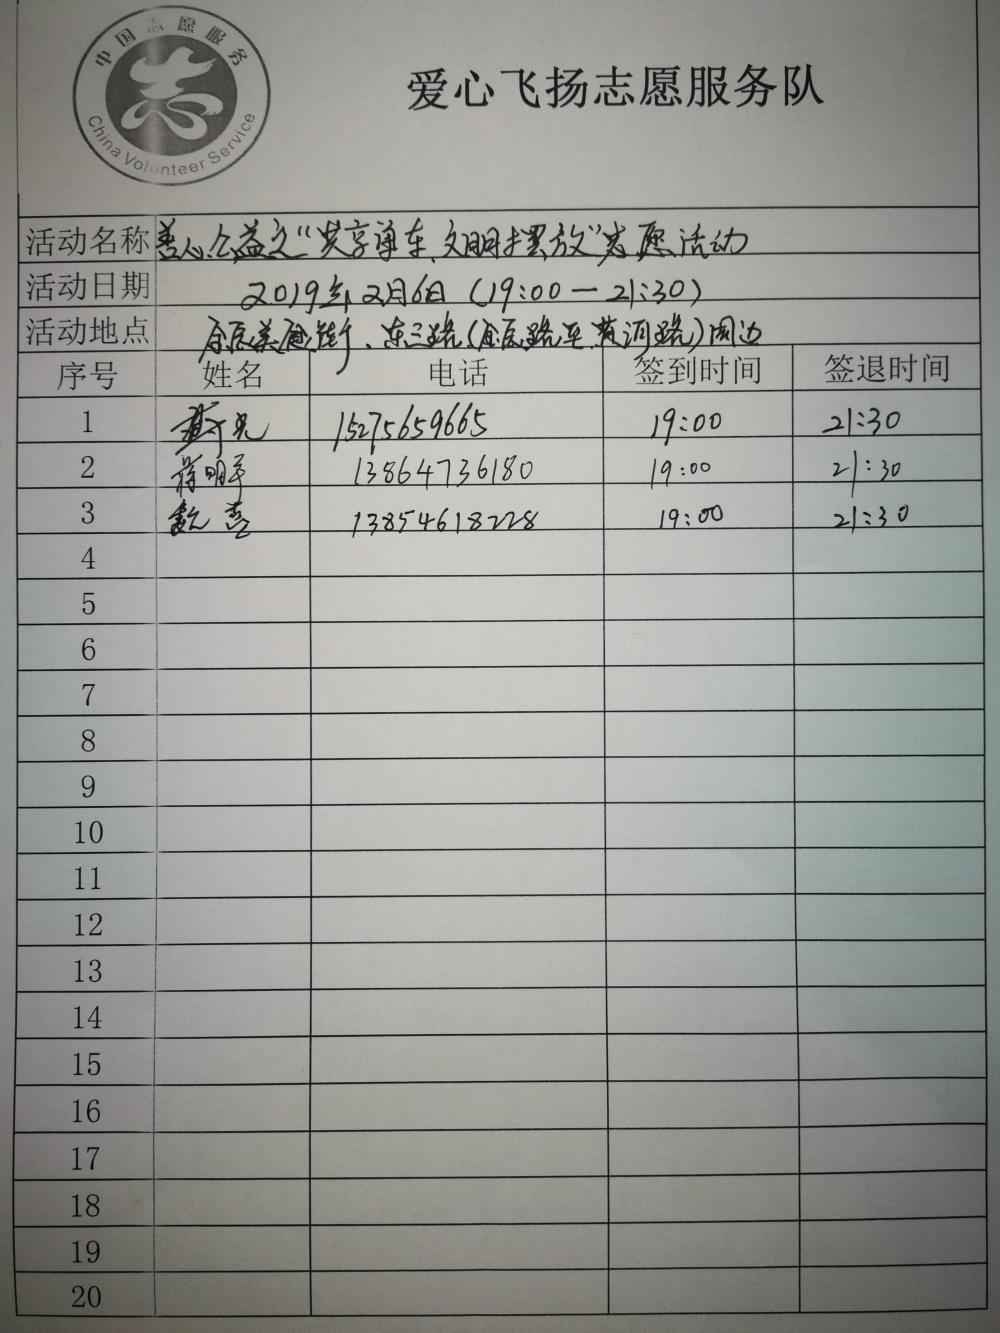 中国志愿服务
China Volunteer Service
爱心飞扬志愿服务队
活动名称 善心公益之“共享单车、文明摆放”志愿活动
活动日期 2019年2月6日（19:00—21:30）
活动地点 美食街、东三路（路至黄河路）周边
序号 姓名 电话 签到时间 签退时间
1 15275659665 19:00 21:30
2 蒋明军 13864736180 19:00 21:30
3 13854618228 19:00 21:30
4
5
6
7
8
9
10
11
12
13
14
15
16
17
18
19
20